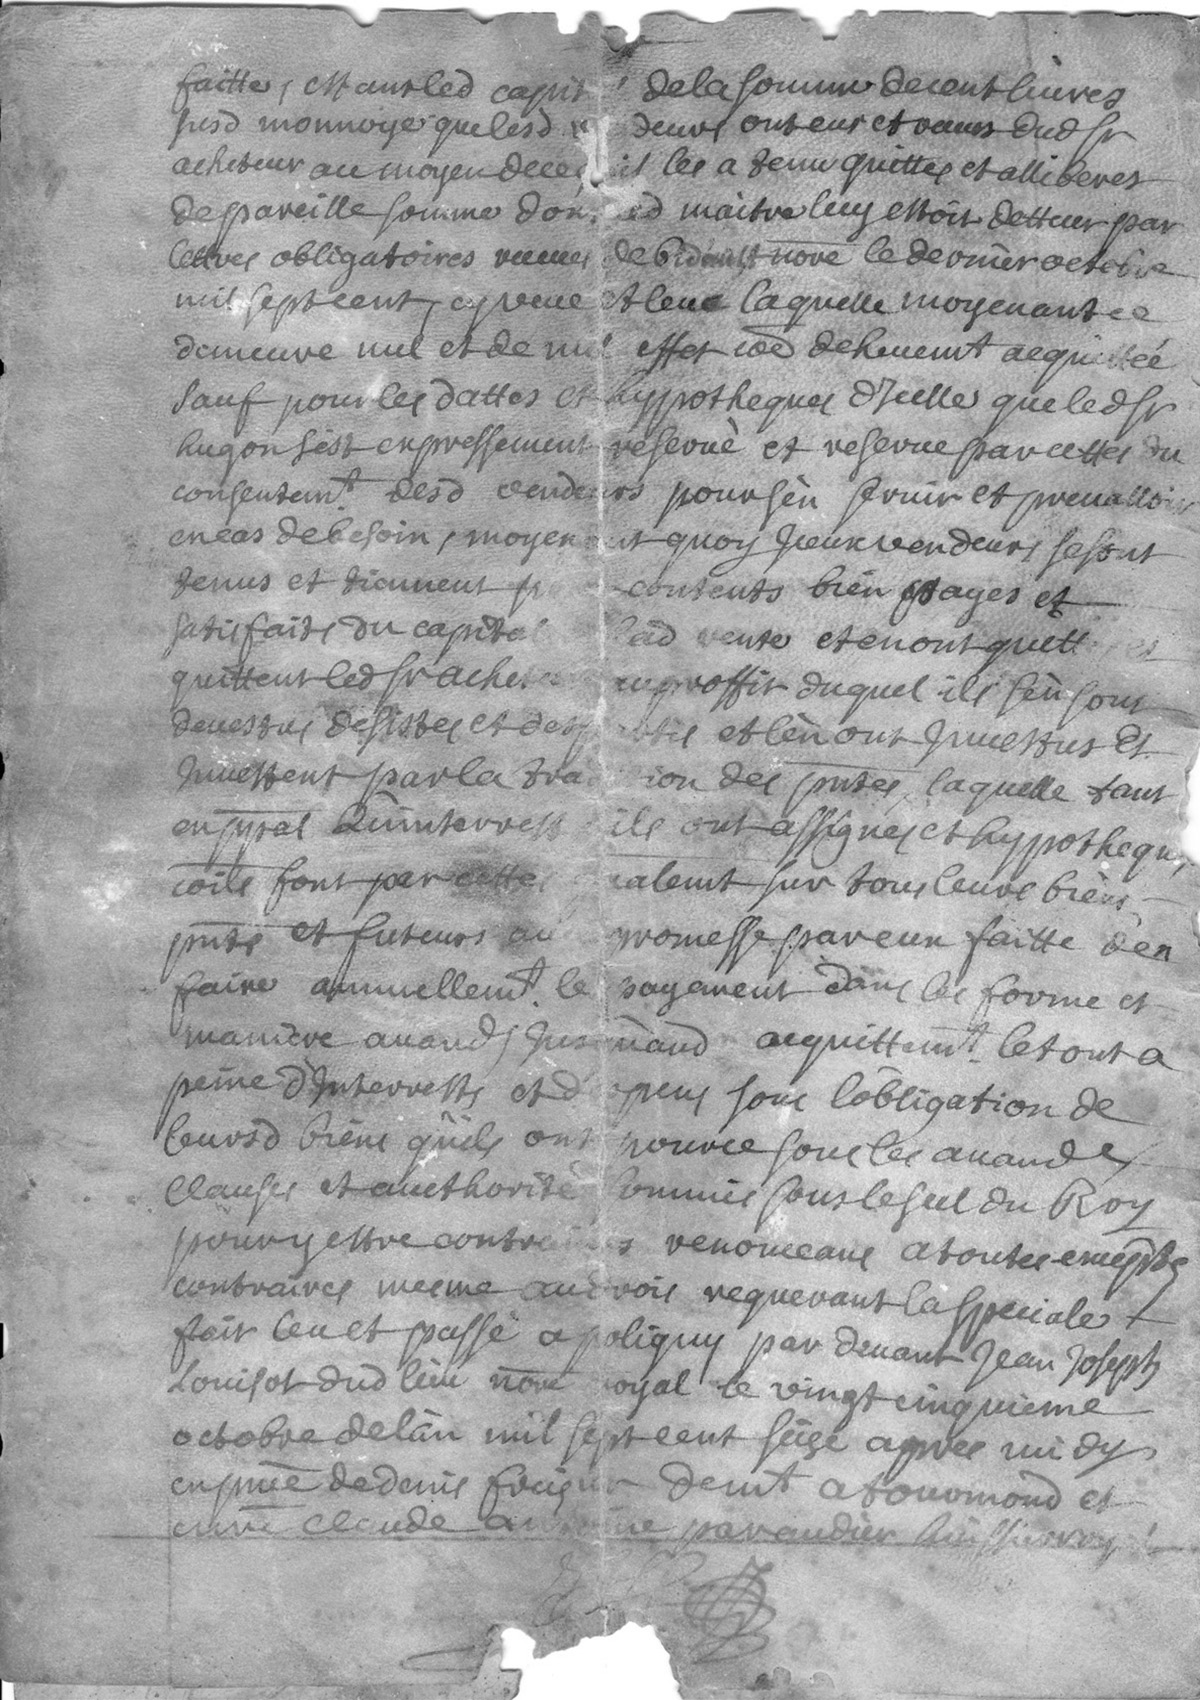 faitte, estant led capit dela somme decent livres
susd monnoye quelesd deurs ont eus et receus dud sr
acheteur au moyen dece il les a tenu quittes et alliberes
depareille somme don led maitre luy estoit detteur par
lettres obligatoires receues de nore le dernier octobre
mil sept cent, cy veue et leue laquelle moyenant ce
demeure nul et de nul effet coe dehuemt acquittée
sauf pour les dattes et hyppotheques d'Icelle queledsr
hugon sest expressement reservé et reserve par cettes du
consentemt desd vendeurs pour sen servir et prevalloir
en cas debesoin, moyenant quoy Iceux vendeurs se sont
tenus et tiennent p contents bien payes et
satisfaits du capital lad vente et en ont quitt
quittent led sr achet au proffit duquel ils sen sont
devestus desistes et desp et len ont Jnvestus et
Jnvestent par la tra ion des pntes, laquelle tant
en pnpal Qu'interrest ils ont assignes et hypotheques
coils font par cettes alemt sur tous leurs biens
pnts et futeurs au promesse par eux faitte d'en
faire annuellemt le payement dans les forme et
maniere avand, Jus acquittemt le tout a
peine d'Interrests et d pens sous lobligation de
leursd biens quils ont pource sous les avand,
clauses et aucthorité soumis sous le seel du Roy
pour y estre contraints renonceans a toutes
contraires mesme au rois requerant la speciale
fait leu et passé a poligny par devant Jean Joseph
Louisot dud lieu nore royal le vingt cinquieme
octobre delan mil sept cent seize apres midy
en pnce de denis demt a tourmond et
claude antoine paraudier